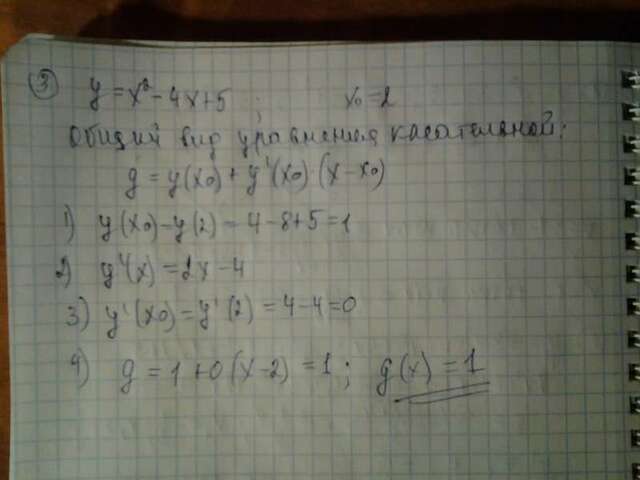 3) y = x² - 4x + 5 ; x₀ = 2
Общий вид уравнения касательной:
g = y(x₀) + y'(x₀)·(x - x₀)
1) y(x₀) = y(2) = 4 - 8 + 5 = 1
2) y'(x) = 2x - 4
3) y'(x₀) = y'(2) = 4 - 4 = 0
4) g = 1 + 0(x - 2) = 1 ; g(x) = 1